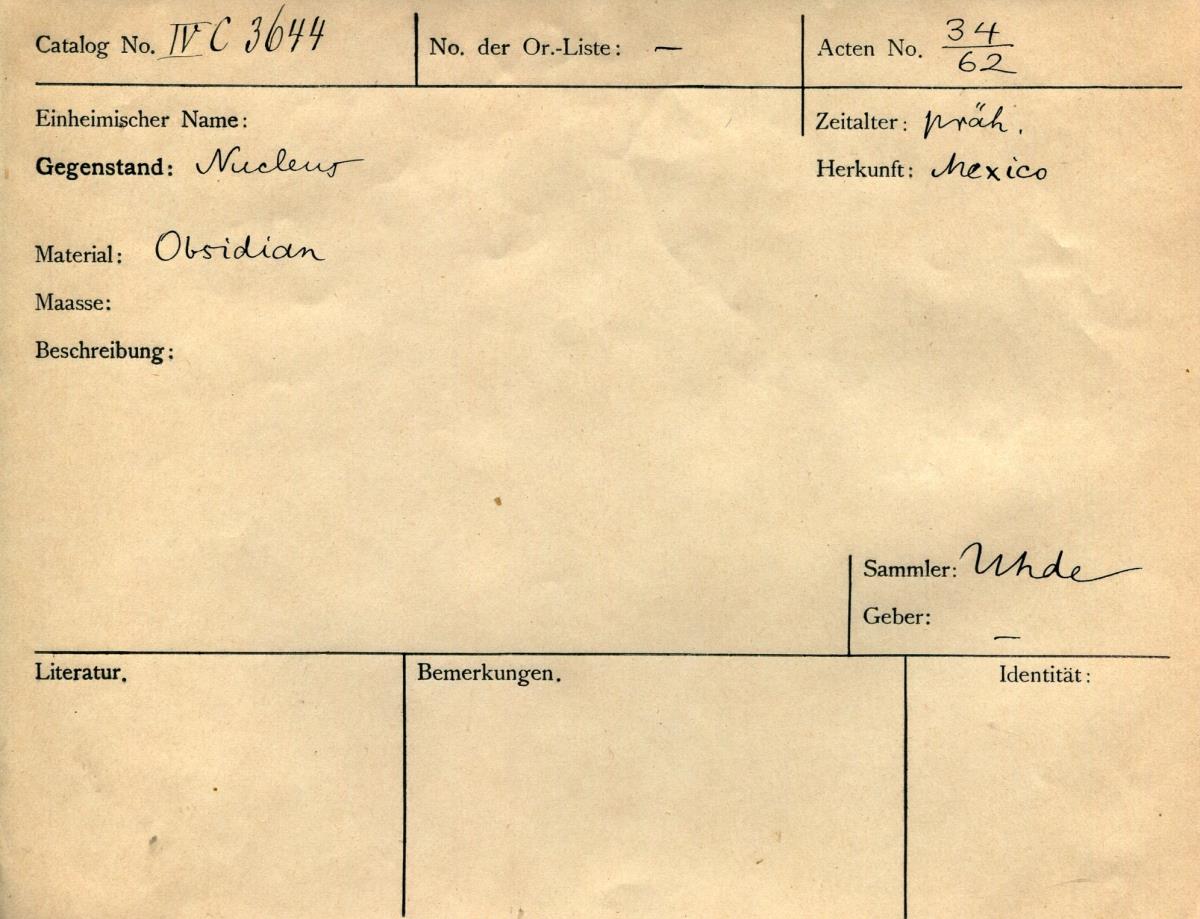 Catalog No. IV C 3644 No. der Or.-Liste: — Acten No. 34/62
Einheimischer Name: Zeitalter: präh.
Gegenstand: Nucleus Herkunft: Mexico
Material: Obsidian
Maasse:
Beschreibung:
Sammler: Uhde
Geber: —
Literatur. Bemerkungen. Identität: